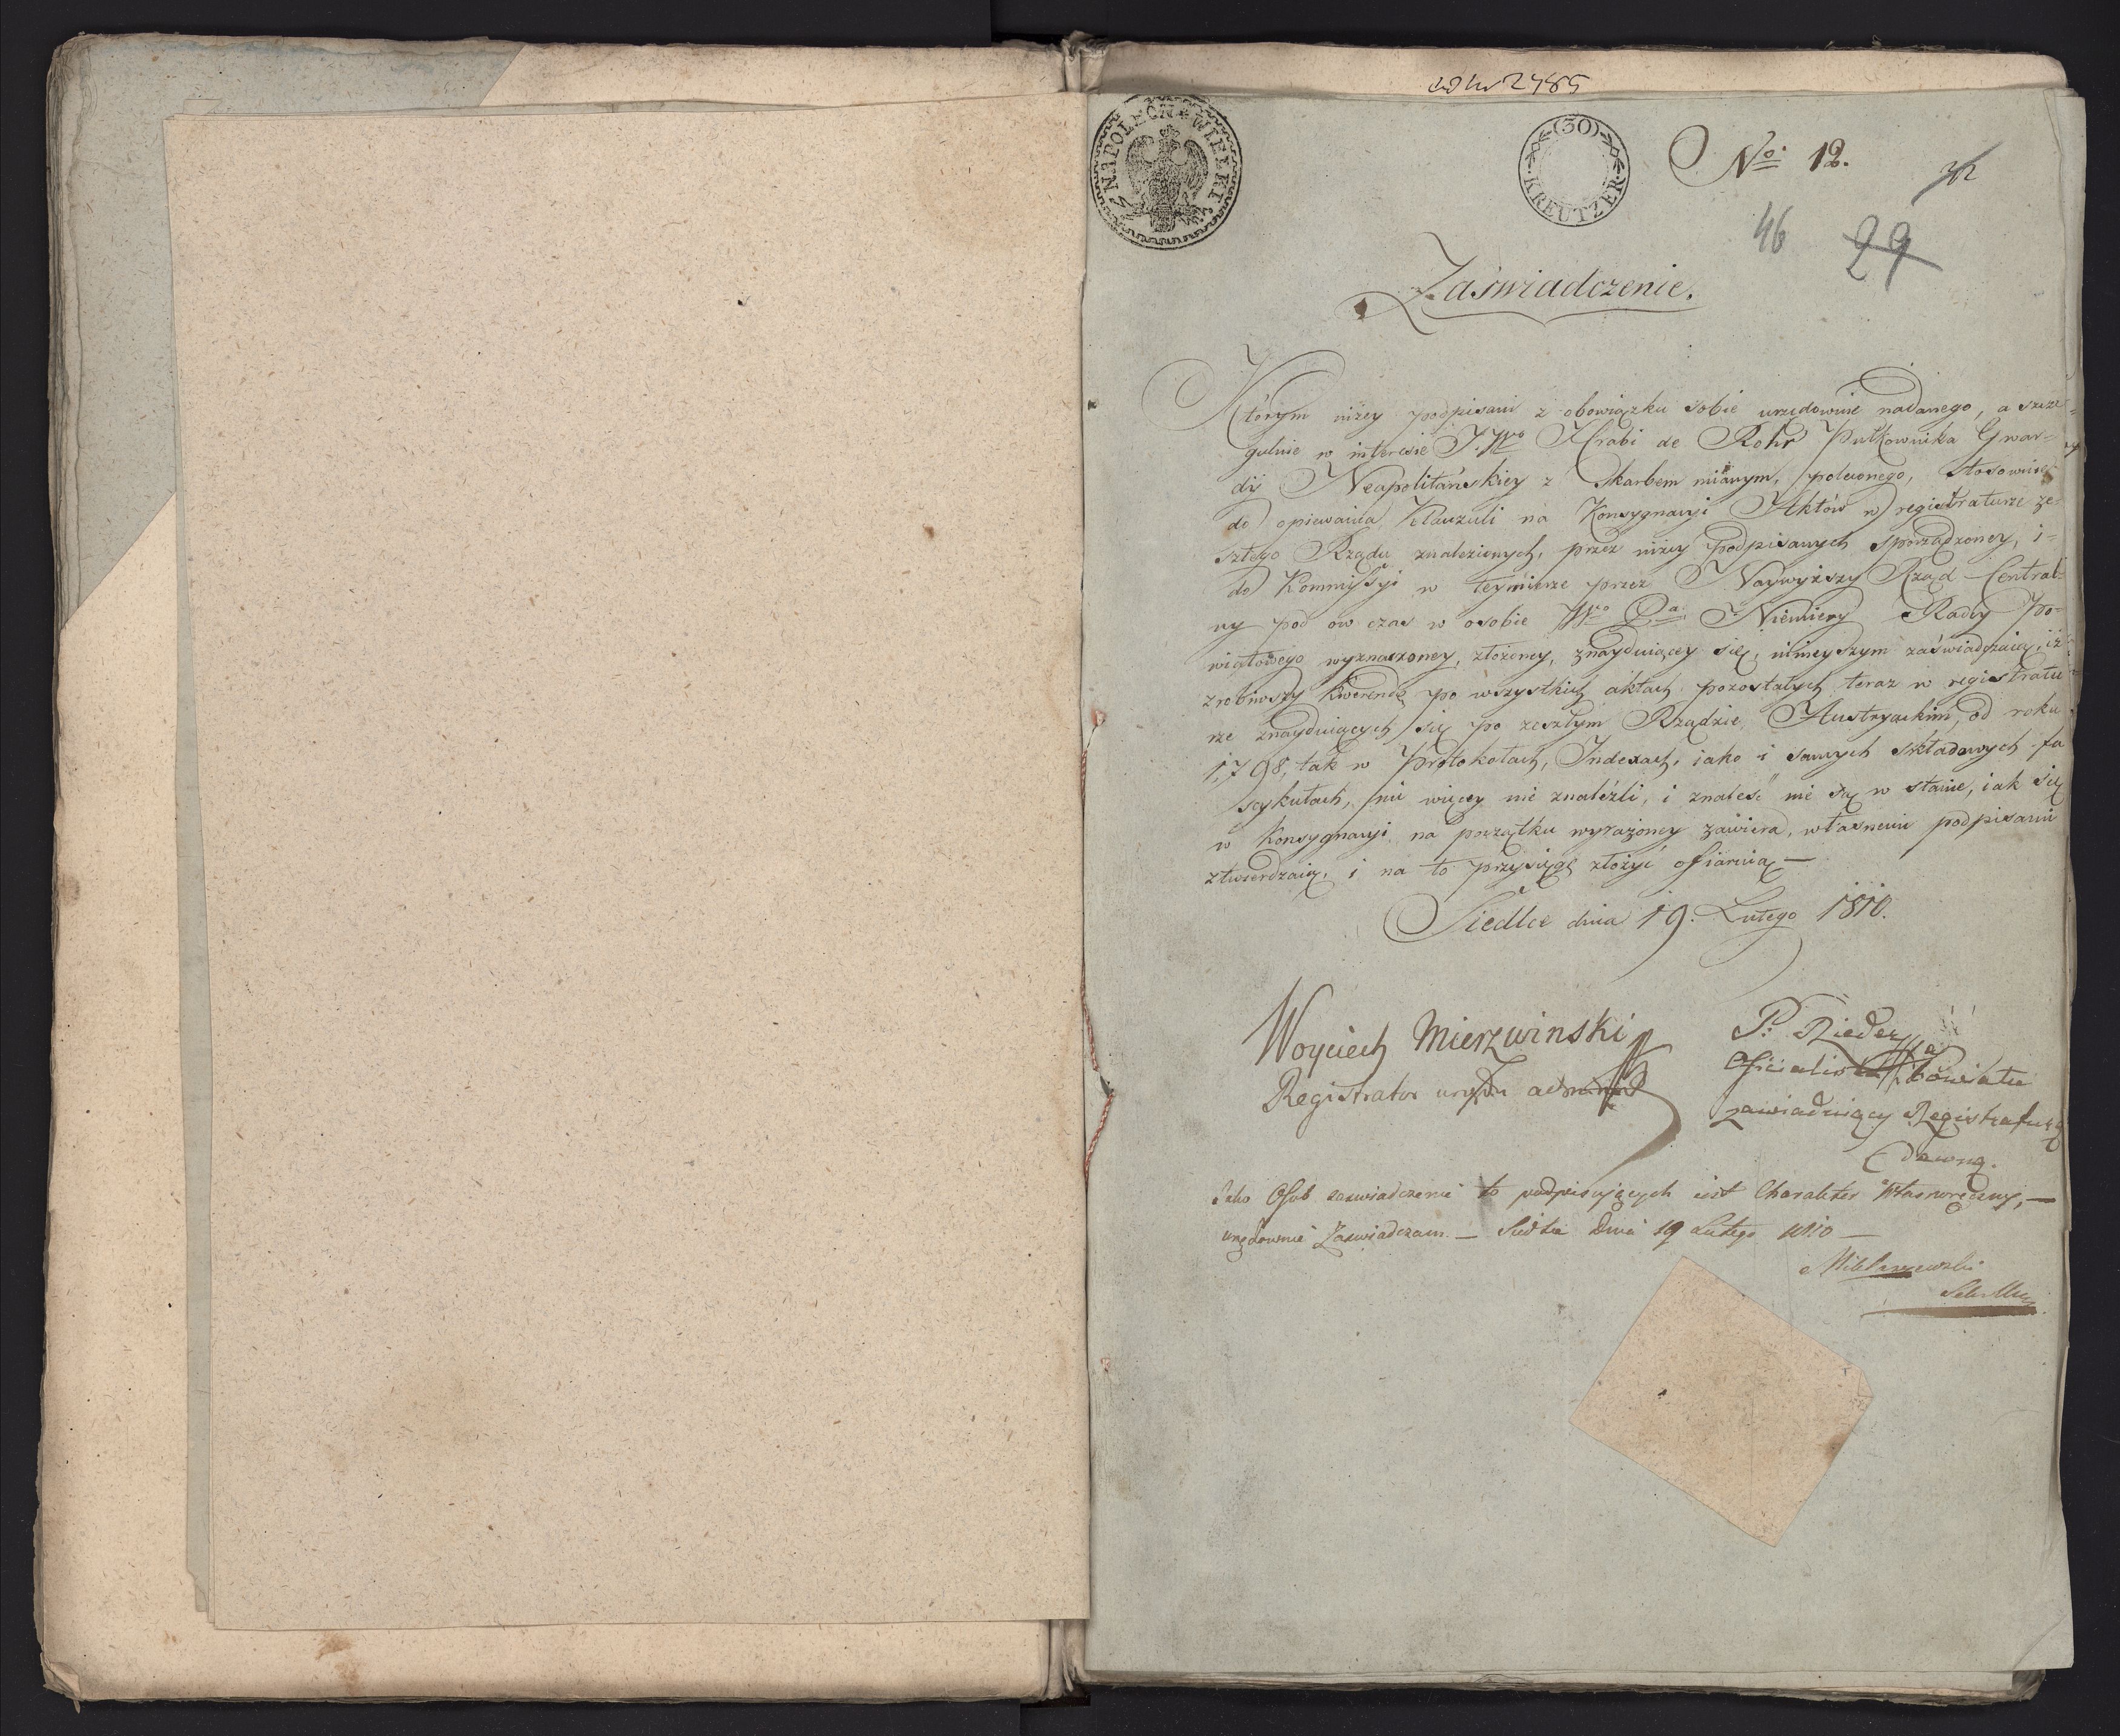 NAPOLEON WIELKI
(30)
KREUTZER
No. 12.
32
46 29
Zaświadczenie.
Którym niżey podpisani z obowiązku sobie urzędownie nadanego, a szcze=
gulnie w interesie J. Wo Hrabi de Rohr Pułkownika Gwar=
dij Neapolitańskiey z Skarbem mianym, poleconego, stosownie
do opiewania Klauzuli na Konsygnacyi Aktów w registraturze ze=
szłego Rządu znalezionych, przez niżey podpisanych sporządzoney, i=
do Kommissyi w teymierze przez Naywyższy Rząd Central=
ny pod ow czas w osobie Wo Pa Niemiery Radcy Po=
wiatowego wyznaczoney, złożoney, znayduiącey się, ninieyszym zaświadczaią, iż
zrobiwszy kwerendę po wszystkich aktach pozostałych teraz w registratu
rze znayduiących się po zeszłym Rządzie Austryackim, od roku
1798, tak w Protokołach, Indexach, iako i samych składowych fa
scykułach, nic więcey nie znaleźli, i znaleść nie są w stanie, iak się
w Konsygnacyi na początku wyrażoney zawiera, własnemi podpisami
ztwierdzaią, i na to przysięgę złożyć ofiaruią —
Siedlce dnia 19. Lutego 1810.
Woyciech Mierzwinski
Registrator urzędu
P. Rieder
Oficialista Powiatu
zawiaduiący Registraturą
dawną.
Jako Osob zaswiadczenie to podpisujących iest Charakter Własnoręczny, —
urzędownie Zaswiadczam. — Siedlce Dnia 19 Lutego 1810 —